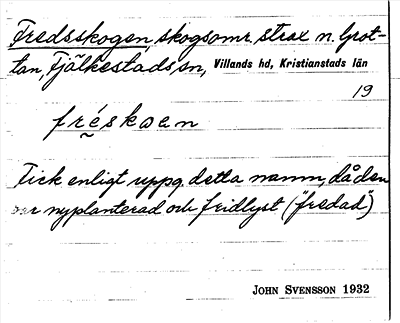 Fredsskogen, skogsomr. strax n. Grot-
tan, Fjälkestads sn, Villands hd, Kristianstads län
19
fréskoen
Fick enligt uppg. detta namn, då den
var nyplanterad och fridlyst ("fredad")
JOHN SVENSSON 1932